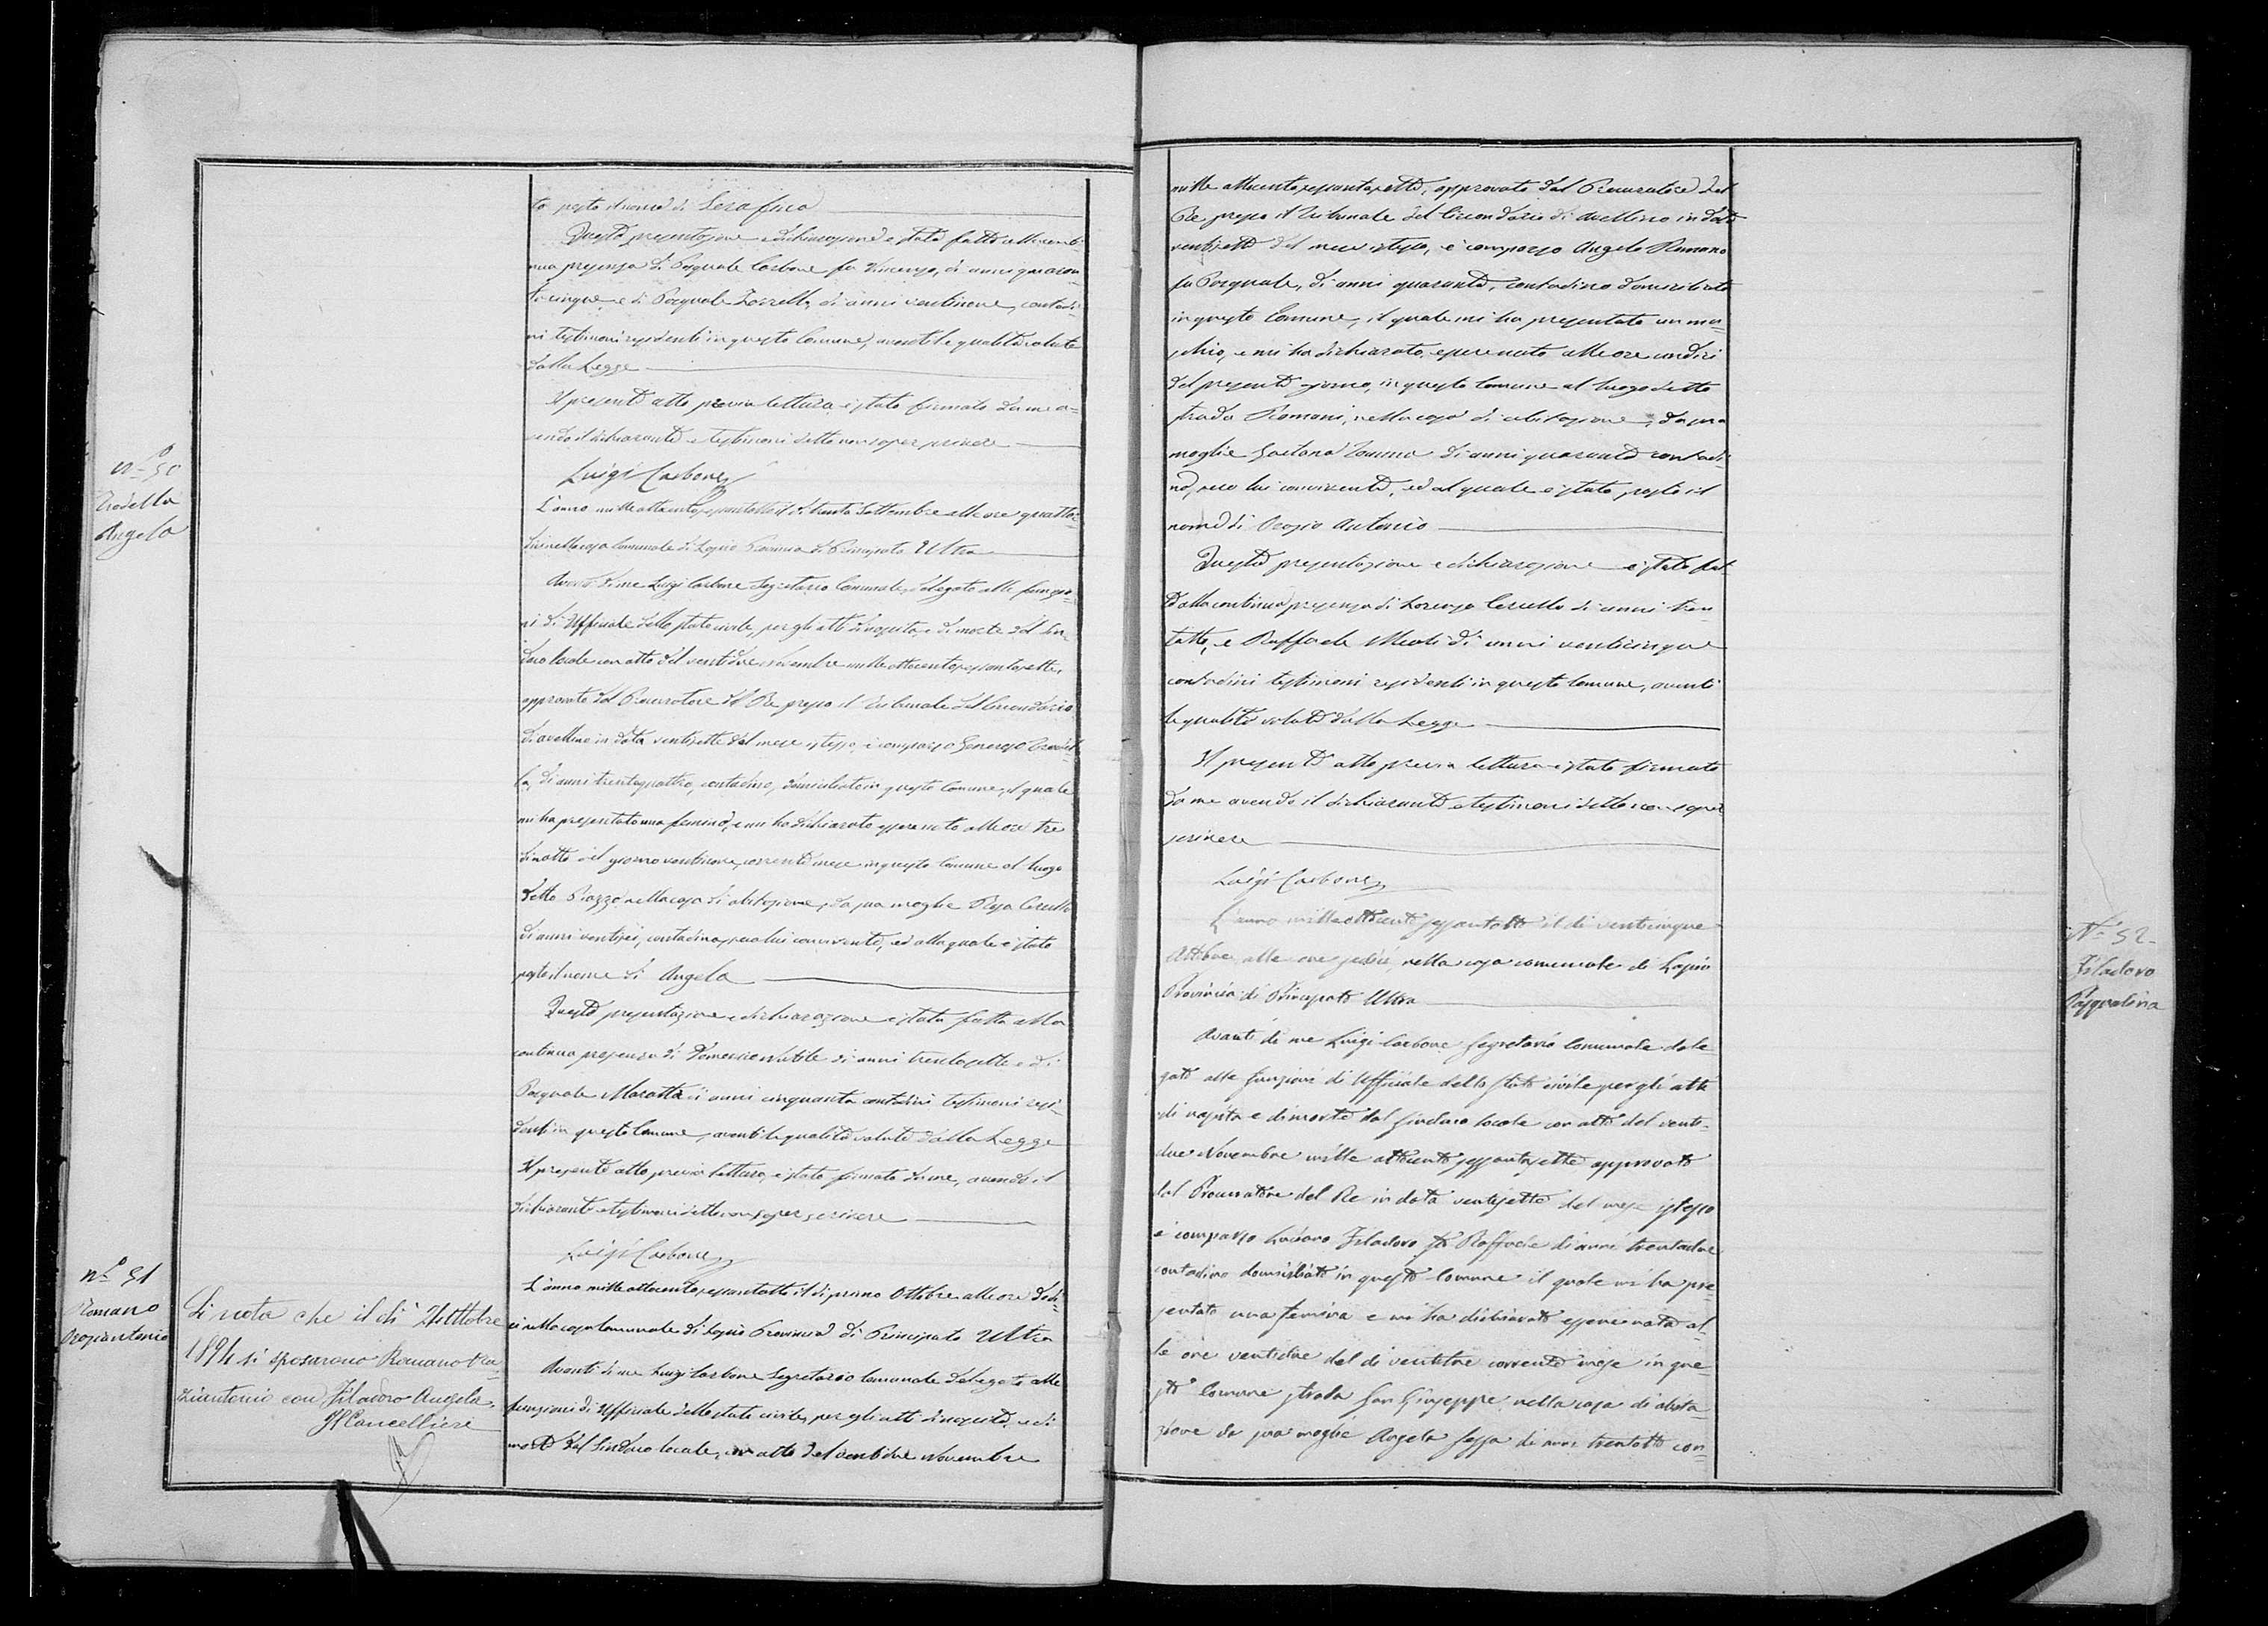 to posto il nome di Serafina
Questa presentazione e dichiarazione è stata fatta alla conti-
nua presenza di Pasquale Carbone fu Vincenzo, di anni quaran
tacinque e di Pasquale Zorrella di anni ventinove, contadi-
ni testimoni residenti in questo Comune, aventi le qualità volute
dalla Legge
Il presente atto previa lettura è stato firmato da me a-
vendo il dichiarante e testimoni detto non saper scrivere
Luigi Carbone
nº 50
Angela
L'anno mille ottocentosessantotto il dì trenta Settembre alle ore quattor-
dici nella casa Comunale di Lapio Provincia di Principato Ultra
Avanti di me Luigi Carbone Segretario Comunale, delegato alle funzio-
ni di Uffiziale dello stato civile, per gli atti di nascita e di morte dal Sin-
daco locale con atto del ventidue novembre mille ottocentosessantasette,
approvato dal Procuratore del Re presso il Tribunale del Circondario
di Avellino in data ventisette del mese istesso, è comparso Generoso
la, di anni trentaquattro, contadino, domiciliato in questo Comune, il quale
mi ha presentato una femina, e mi ha dichiarato esser nata alle ore tre
di notte del giorno ventinove corrente mese in questo Comune al luogo
detto Piazza nella casa di abitazione, da sua moglie Rosa Ciriello
di anni ventisei, contadina, seco lui convivente, ed alla quale è stato
posto il nome di Angela
Questa presentazione e dichiarazione è stata fatta alla
continua presenza di Domenico di anni trentasette e di
Pasquale Marotta di anni cinquanta contadini testimoni resi-
denti in questo Comune, aventi le qualità volute dalla Legge
Il presente atto previa lettura, è stato firmato da me, avendo il
dichiarante e testimoni detto non saper scrivere
Luigi Carbone
nº 51
Romano
Oraziantonio
Si nota che il dì 21 Ottobre
1894 si sposarono Romano Ora-
ziantonio con Filadoro Angela.
Il Cancelliere
L'anno mille ottocentosessantotto il dì primo Ottobre alle ore dodi-
ci nella casa Comunale di Lapio Provincia di Principato Ultra
Avanti di me Luigi Carbone Segretario Comunale delegato alle
funzioni di Uffiziale dello stato civile, per gli atti di nascita, e di
morte dal Sindaco locale, con atto del ventidue Novembre
mille ottocentosessantasette, approvato dal Procuratore del
Re presso il Tribunale del Circondario di Avellino in data
ventisette del mese istesso, è comparso Angelo Romano
fu Pasquale, di anni quaranta, contadino domiciliato
in questo Comune, il quale mi ha presentato un ma-
schio, e mi ha dichiarato, esser nato alle ore undici
del presente giorno, in questo Comune al luogo detto
strada Romani, nella casa di abitazione, da sua
moglie Gaetana di anni quaranta contadi-
na, seco lui convivente, ed al quale è stato posto il
nome di Orazio Antonio
Questa presentazione e dichiarazione è stata fat-
ta alla continua presenza di Lorenzo Ciriello di anni tren
totto, e Raffaele Meoli di anni venticinque
contadini testimoni residenti in questo Comune, aventi
le qualità volute dalla Legge
Il presente atto previa lettura è stato firmato
da me avendo il dichiarante e testimoni detto non saper
scrivere
Luigi Carbone
Nº 52
Filadoro
Pasqualina
L'anno mille ottocento sessantotto il dì venticinque
Ottobre alle ore sedici, nella casa comunale di Lapio
Provincia di Principato Ultra
Avanti di me Luigi Carbone Segretario Comunale dele-
gato alle funzioni di Uffiziale dello Stato civile per gli atti
di nascita e di morte dal Sindaco locale con atto del venti-
due Novembre mille ottocento sessantasette approvato
dal Procuratore del Re in data ventisette del mese istesso
è comparso Luciano Filadoro fu Raffaele di anni trentadue
contadino domiciliato in questo Comune il quale mi ha pre-
sentato una femina e mi ha dichiarato esser nata al-
le ore ventidue del dì ventitre corrente mese in que-
sto Comune strada San Giuseppe nella casa di abita-
zione da sua moglie Angela Sessa di anni trentotto con-